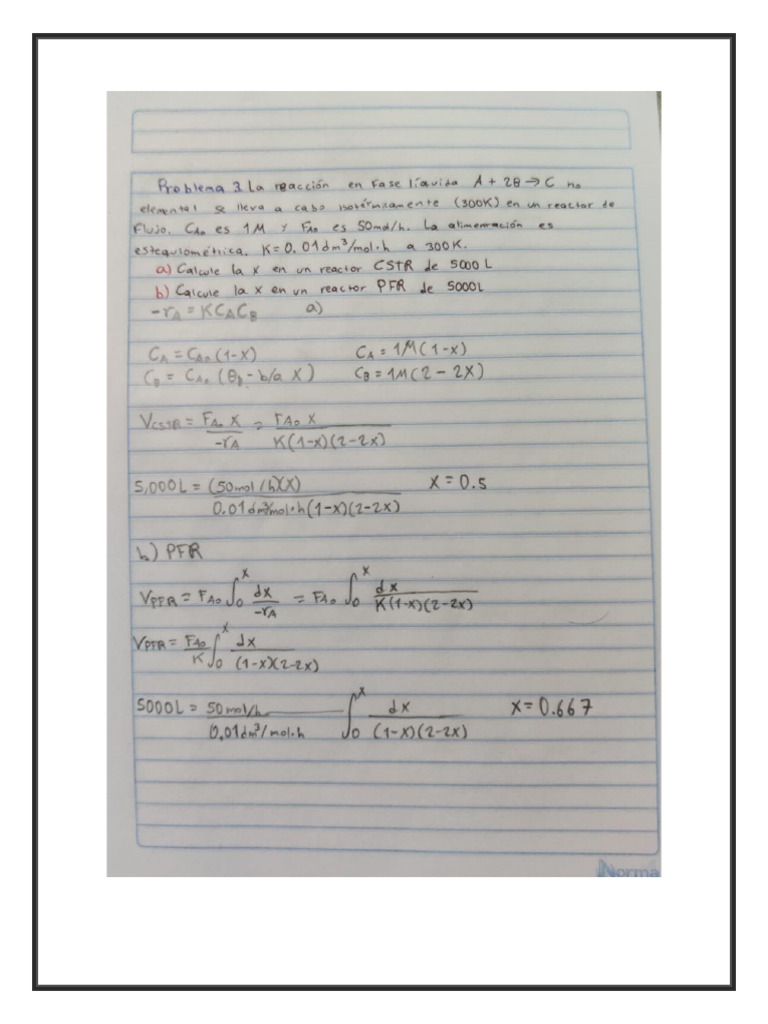 Problema 3. La reacción en fase líquida A + 2B → C no
elemental se lleva a cabo isotérmicamente (300K) en un reactor de
flujo. CA₀ es 1M y FA₀ es 50mol/h. La alimentación es
estequiométrica. K=0.01dm³/mol·h a 300K.
a) Calcule la x en un reactor CSTR de 5000 L
b) Calcule la x en un reactor PFR de 5000L
-rA = KCACB a)
CA = CA₀(1-X) CA = 1M(1-x)
CB = CA₀(θb - b/a X) CB = 1M(2-2X)
VCSTR = FA₀ X / -rA = FA₀ X / K(1-x)(2-2x)
5,000L = (50mol/h)(X) / 0.01dm³/mol·h(1-x)(2-2x) X = 0.5
b) PFR
VPFR = FA₀ ∫₀ˣ dx / -rA = FA₀ ∫₀ˣ dx / K(1-x)(2-2x)
VPFR = FA₀ / K ∫₀ˣ dx / (1-x)(2-2x)
5000L = 50mol/h / 0,01dm³/mol·h ∫₀ˣ dx / (1-x)(2-2x) X=0.667
Norma